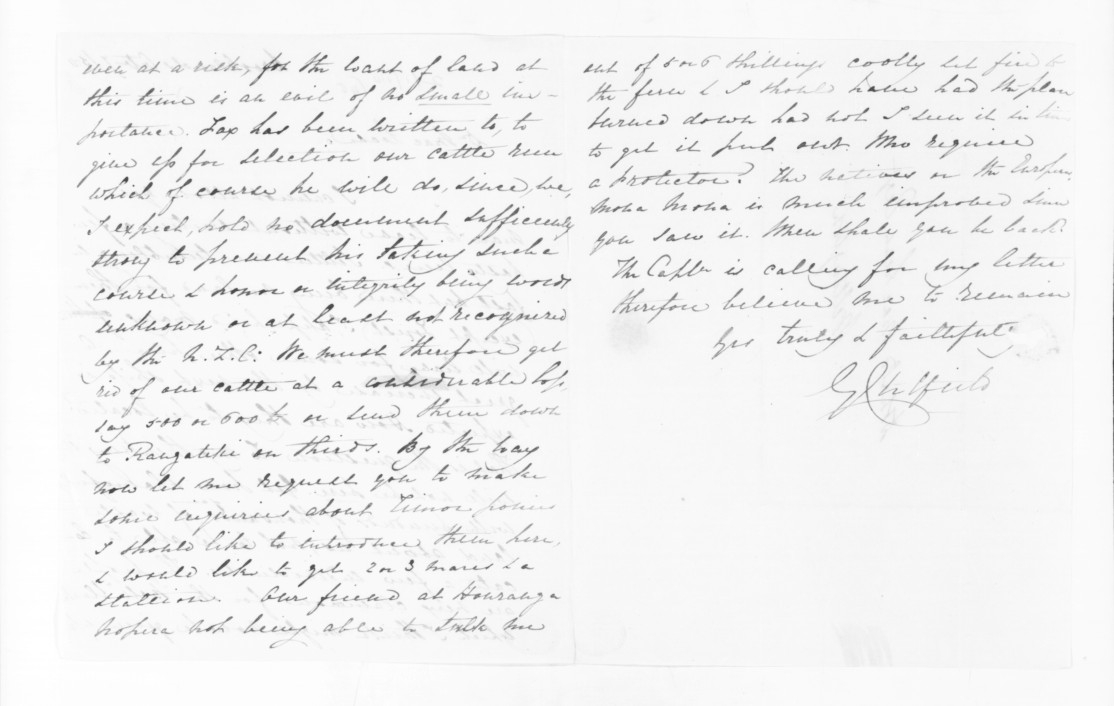 even at a risk, for the want of land at
this time is an evil of no small im-
portance. Fox has been written to, to
give up for selection our cattle run
which of course he will do, since, we,
I expect, hold no document sufficiently
strong to prevent his taking such a
course & honor or integrity being words
unknown or at least not recognized
by the N.Z.C: We must therefore get
rid of our cattle at a considerable loss
say 500 or 600£ or send them down
to Rangatiki on thirds. By the way
now let me request you to make
some inquiries about Timor ponies
I should like to introduce them here,
& would like to get 2 or 3 mares & a
stallion. Our friend at Houranga
not being able to me
out of 5 or 6 shillings coolly set fire to
the fern & I should have had the place
burned down had not I seen it in time
to get it put out. Who require
a Protector? The natives or the European,
Moha Moha is much improved since
you saw it. When shall you be back?
The Captn is calling for my letter
therefore believe me to remain
Yrs truly & faithfully